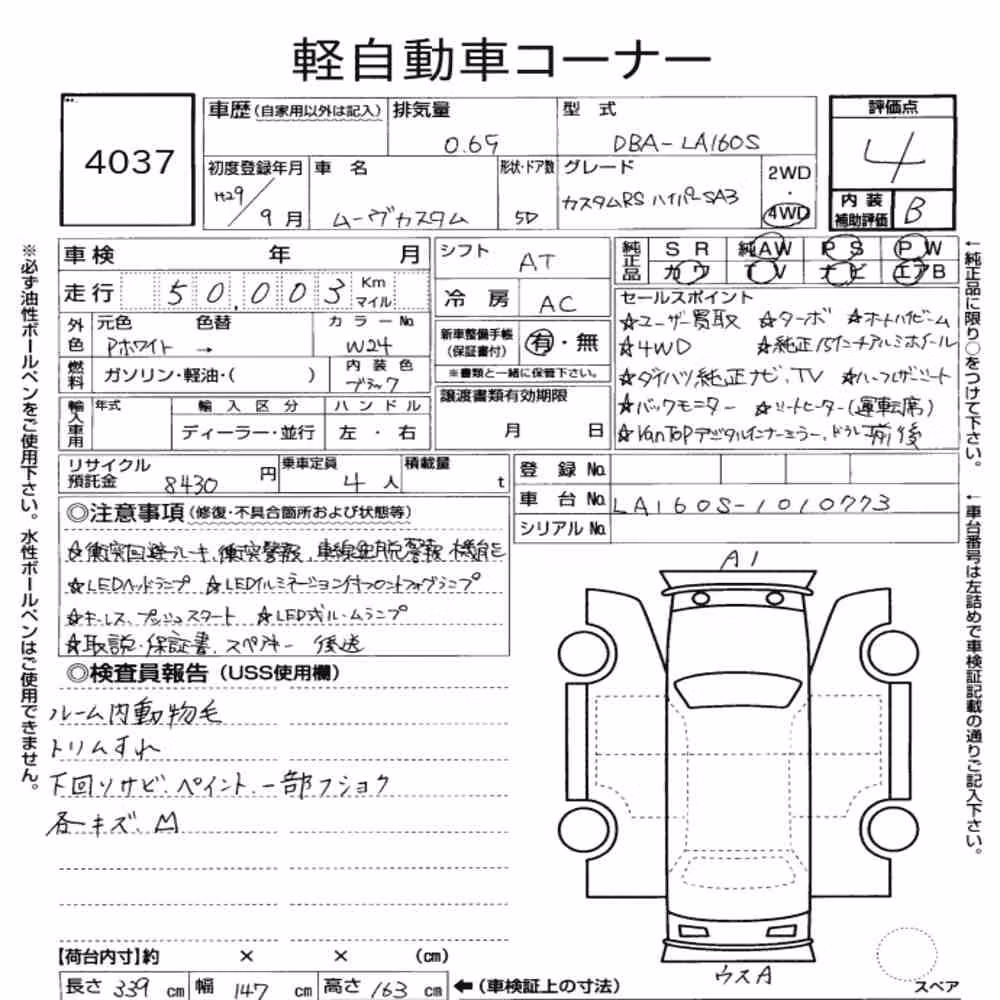 軽自動車コーナー
4037
車歴(自家用以外は記入)
排気量
0.65
型 式
DBA-LA160S
評価点
4
初度登録年月
H29/9月
車 名
ムーヴカスタム
形状・ドア数
5D
グレード
カスタムRS ハイパーSA3
2WD
・
4WD
内装
補助評価
B
車検 年 月
走行 50,003 Km
マイル
外色
元色 色替
Pホワイト →
カラーNo.
W24
燃料
ガソリン・軽油・( )
内装色
ブラック
輸入車用
年式
輸入区分
ディーラー・並行
ハンドル
左・右
シフト
AT
冷房
AC
新車整備手帳
(保証書付)
有・無
※書類と一緒に保管下さい。
譲渡書類有効期限
月 日
純正品
SR 純AW PS PW
カワ TV ナビ エアB
セールスポイント
☆ユーザー買取 ☆ターボ ☆オートハイビーム
☆4WD ☆純正15インチアルミホイール
☆ダイハツ純正ナビ、TV ☆ハーフレザーシート
☆バックモニター ☆シートヒーター(運転席)
☆VanTopデジタルインナーミラー、ドラレコ前後
リサイクル
預託金
8430円
乗車定員
4人
積載量
t
登録No.
車台No.
LA160S-1010773
シリアルNo.
◎注意事項(修復・不具合箇所および状態等)
☆衝突回避ブレーキ、衝突警報、車線逸脱警報機能
☆LEDヘッドランプ ☆LEDイルミネーション付フロントフォグランプ
☆キーレス、プッシュスタート ☆LED式ルームランプ
☆取説・保証書、スペアキー 後送
◎検査員報告(USS使用欄)
ルーム内動物毛
トリムすれ
下回りサビ、ペイント、一部フショク
各キズ、凹
A1
ウスA
スペア
【荷台内寸】約 × × (cm)
長さ 339 cm 幅 147 cm 高さ 163 cm ←(車検証上の寸法)
※必ず油性ボールペンをご使用下さい。水性ボールペンはご使用できません。
←純正品に限り○をつけて下さい。
←車台番号は左詰めで車検証記載の通りご記入下さい。